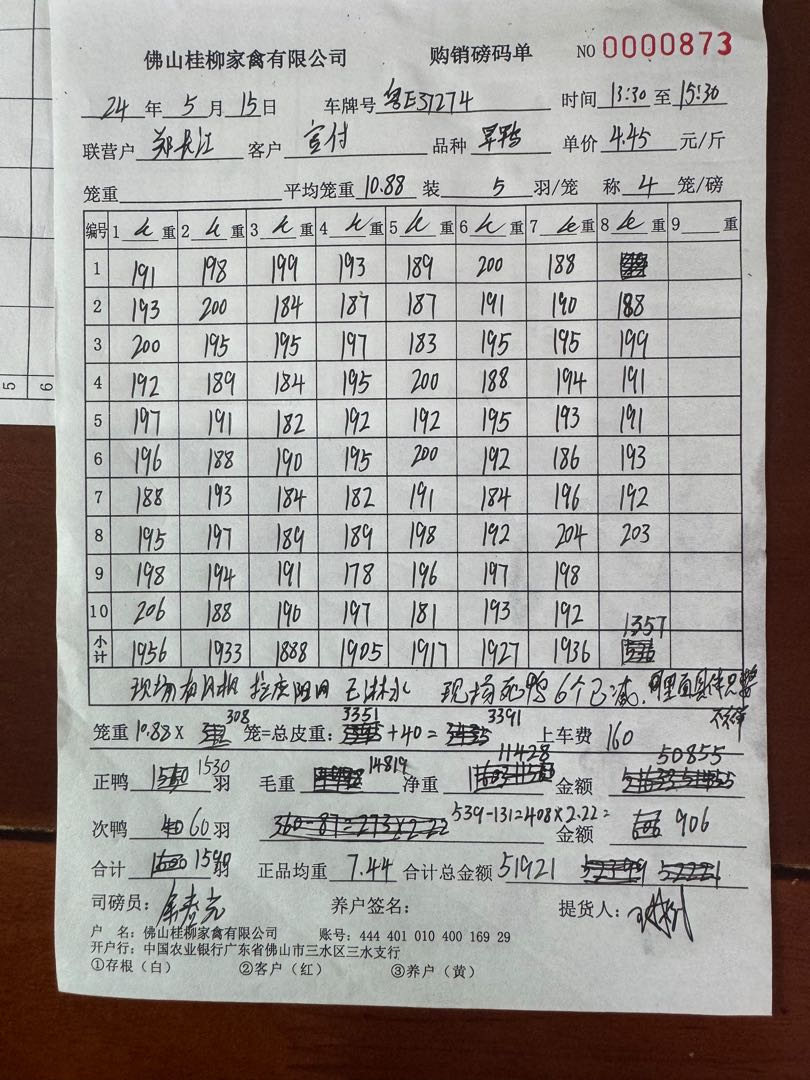 佛山桂柳家禽有限公司 购销磅码单 NO 0000873
24 年 5 月 15 日 车牌号 粤E37274 时间 13:30 至 15:30
联营户 郑长江 客户 宣付 品种 旱鸭 单价 4.45 元/斤
笼重 平均笼重 10.88 装 5 羽/笼 称 4 笼/磅
编号 1 重 2 重 3 重 4 重 5 重 6 重 7 重 8 重 9 重
1 191 198 199 193 189 200 188
2 193 200 184 187 187 191 190 188
3 200 195 195 197 183 195 195 199
4 192 189 184 195 200 188 194 191
5 197 191 182 192 192 195 193 191
6 196 188 190 195 200 192 186 193
7 188 193 184 182 191 184 196 192
8 195 197 189 189 198 192 204 203
9 198 194 191 178 196 197 198
10 206 188 190 197 181 193 192
小计 1956 1933 1888 1905 1917 1927 1936 1357
现场 已淋水 现场死鸭6个已减
笼重 10.88× 308 笼=总皮重: 3351 +40= 3391 上车费 160
正鸭 1530 羽 毛重 14819 净重 11428 金额 50855
次鸭 60 羽 360-87=273×2.22 539-131=408×2.22= 金额 906
合计 1590 羽 正品均重 7.44 合计总金额 51921 52221
司磅员: 养户签名: 提货人:
户 名: 佛山桂柳家禽有限公司 账号: 444 401 010 400 169 29
开户行: 中国农业银行广东省佛山市三水区三水支行
①存根(白) ②客户(红) ③养户(黄)
5
6